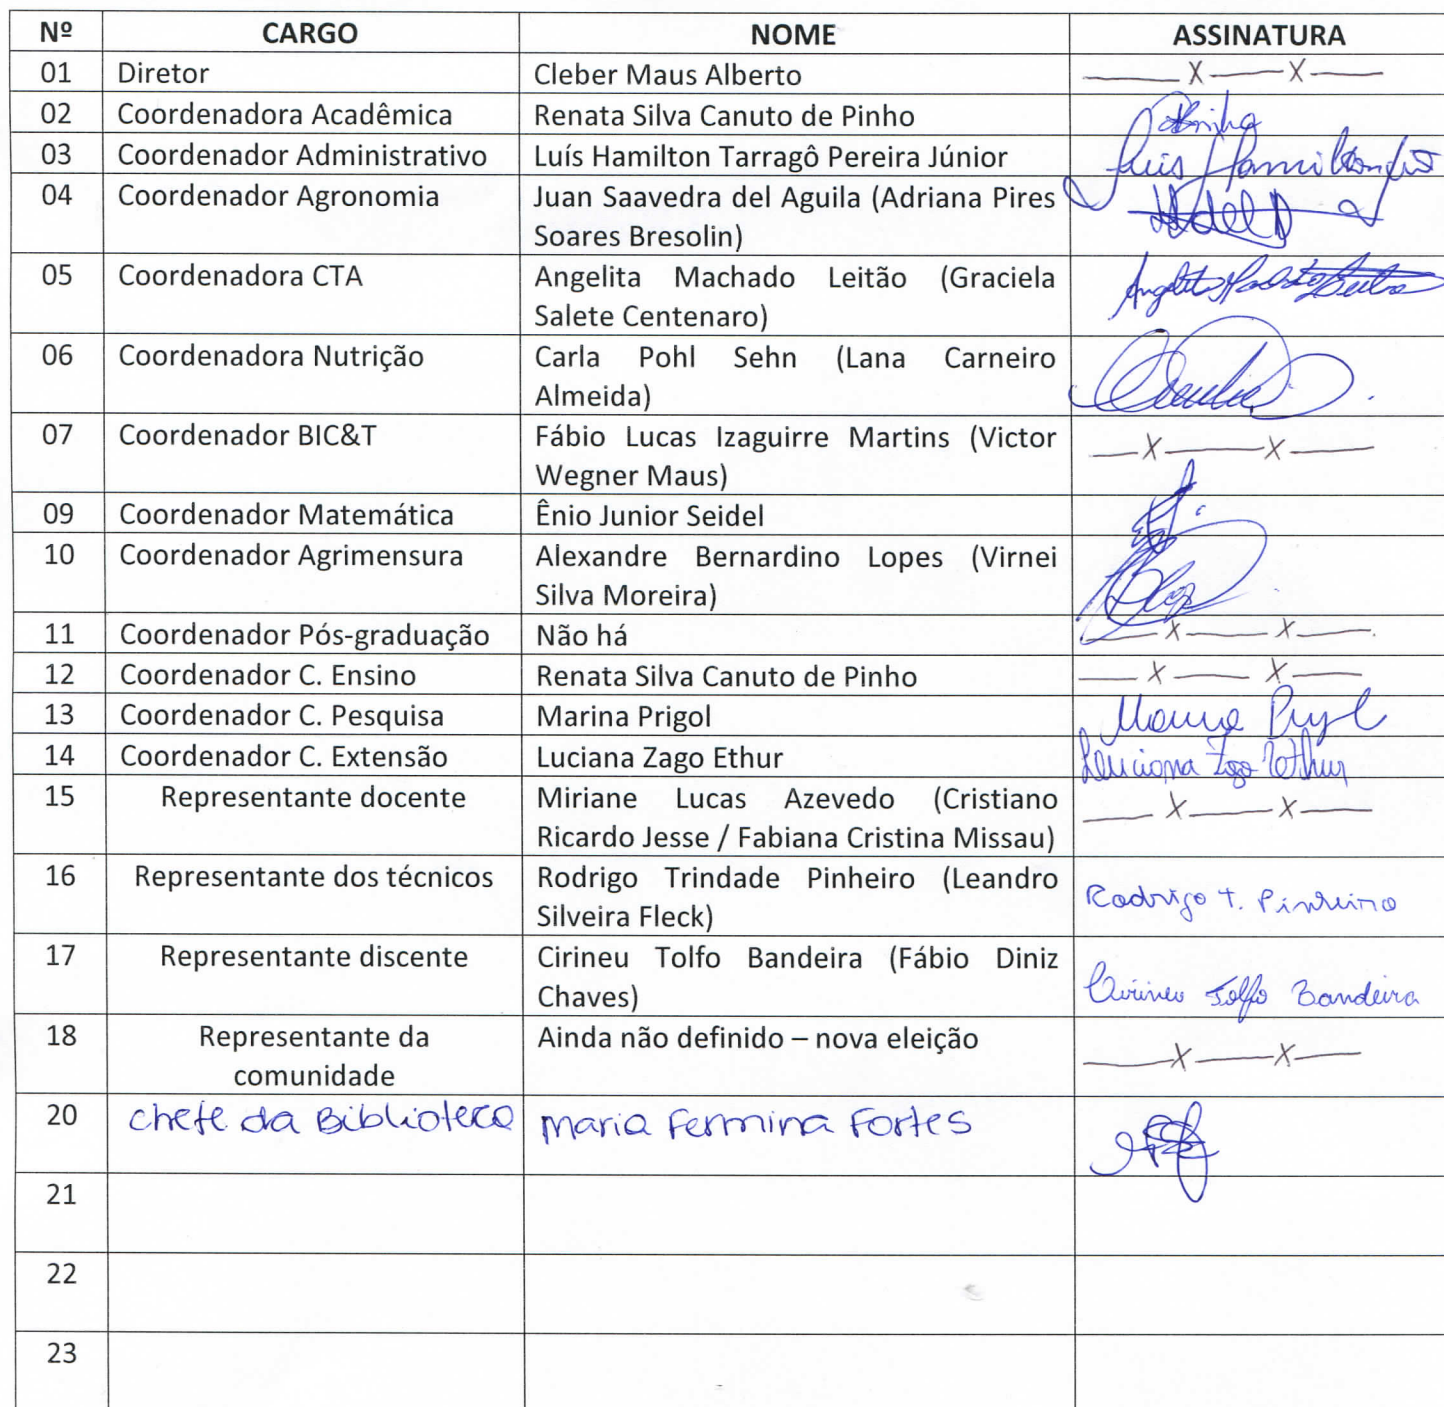 Nº CARGO NOME ASSINATURA
01 Diretor Cleber Maus Alberto ——X——X——
02 Coordenadora Acadêmica Renata Silva Canuto de Pinho
03 Coordenador Administrativo Luís Hamilton Tarragô Pereira Júnior Luis Hamilton
04 Coordenador Agronomia Juan Saavedra del Aguila (Adriana Pires
Soares Bresolin)
05 Coordenadora CTA Angelita Machado Leitão (Graciela Angelita
Salete Centenaro)
06 Coordenadora Nutrição Carla Pohl Sehn (Lana Carneiro
Almeida)
07 Coordenador BIC&T Fábio Lucas Izaguirre Martins (Victor ——X——X——
Wegner Maus)
09 Coordenador Matemática Ênio Junior Seidel
10 Coordenador Agrimensura Alexandre Bernardino Lopes (Virnei
Silva Moreira)
11 Coordenador Pós-graduação Não há ——X——X——
12 Coordenador C. Ensino Renata Silva Canuto de Pinho ——X——X——
13 Coordenador C. Pesquisa Marina Prigol
14 Coordenador C. Extensão Luciana Zago Ethur Luciana Zago Ethur
15 Representante docente Miriane Lucas Azevedo (Cristiano ——X——X——
Ricardo Jesse / Fabiana Cristina Missau)
16 Representante dos técnicos Rodrigo Trindade Pinheiro (Leandro Rodrigo T. Pinheiro
Silveira Fleck)
17 Representante discente Cirineu Tolfo Bandeira (Fábio Diniz Cirineu Tolfo Bandeira
Chaves)
18 Representante da Ainda não definido – nova eleição ——X——X——
comunidade
20 chefe da Biblioteca Maria Fermina Fortes
21
22
23